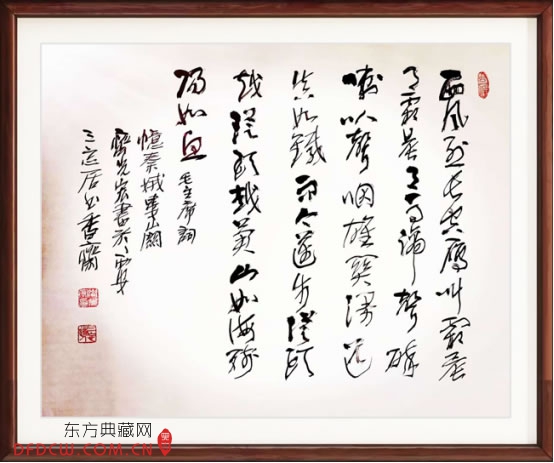 西风烈长空雁叫霜晨
月霜晨月马蹄声碎
喇叭声咽雄关漫道
真如铁而今迈步从头
越从头越苍山如海残
阳如血 毛主席詞
憶秦娥娄山關
光宏書於西安
三忘居书香齋
东方典藏网
DFDCW.COM.CN